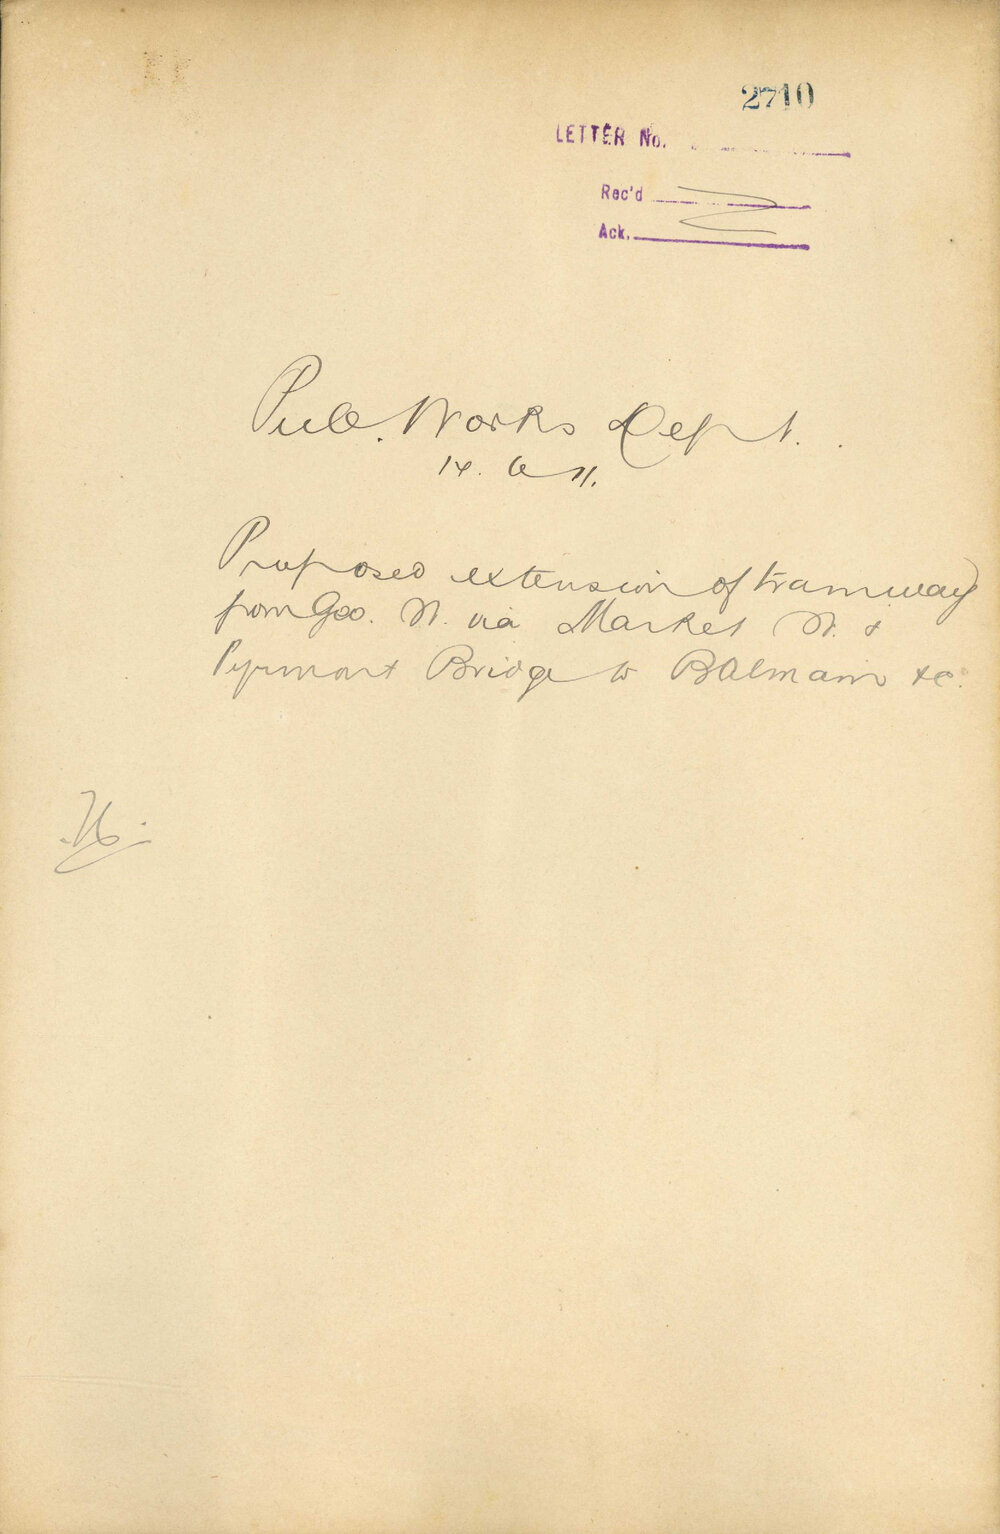 2710
LETTER No.
Rec'd
Ack.
Pub. Works Dept.
14. 6 11.
Proposed extension of tramway
from Geo. St. via Market St. &
Pyrmont Bridge to Balmain &c.